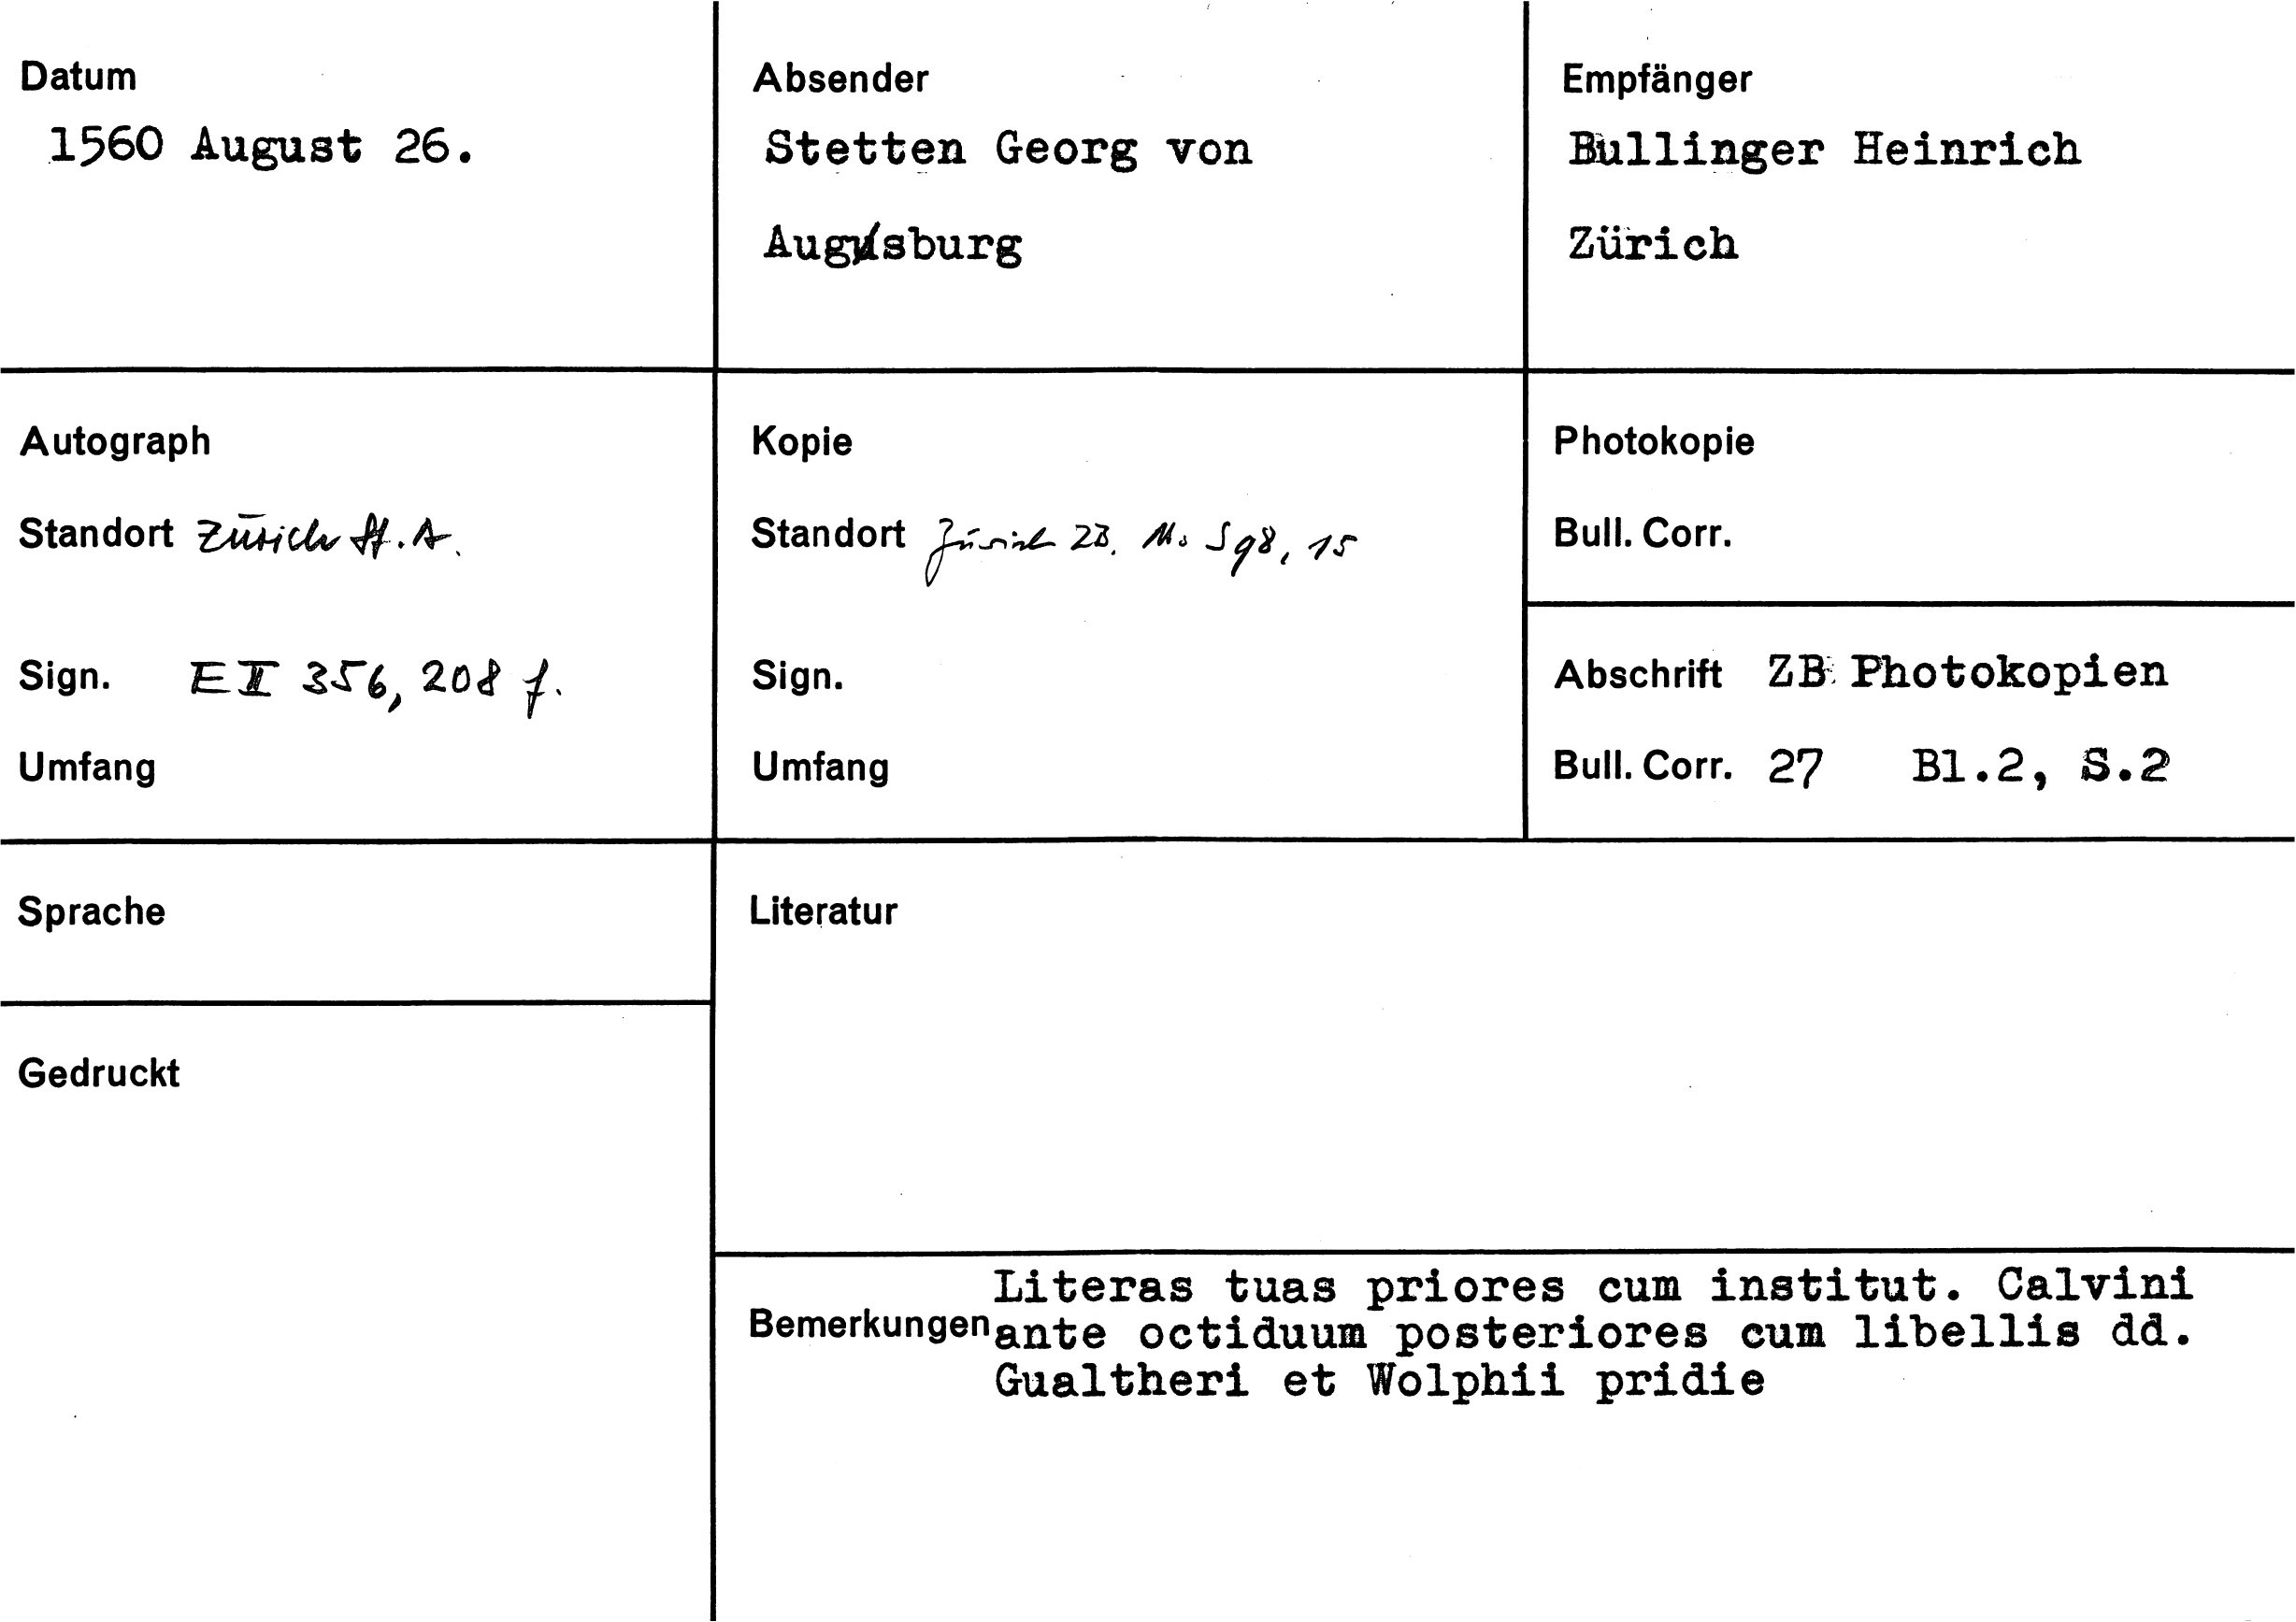 Datum
1560 August 26.
Absender
Stetten Georg von
Augsburg
Empfänger
Bullinger Heinrich
Zürich
Autograph
Standort Zürich St. A.
Sign. E II 356, 208 f.
Umfang
Kopie
Standort Zürich ZB. Ms S 98, 15
Sign.
Umfang
Photokopie
Bull. Corr.
Abschrift ZB Photokopien
Bull. Corr. 27 Bl.2, S.2
Sprache
Gedruckt
Literatur
Literas tuas priores cum institut. Calvini
Bemerkungen ante octiduum posteriores cum libellis dd.
Gualtheri et Wolphii pridie